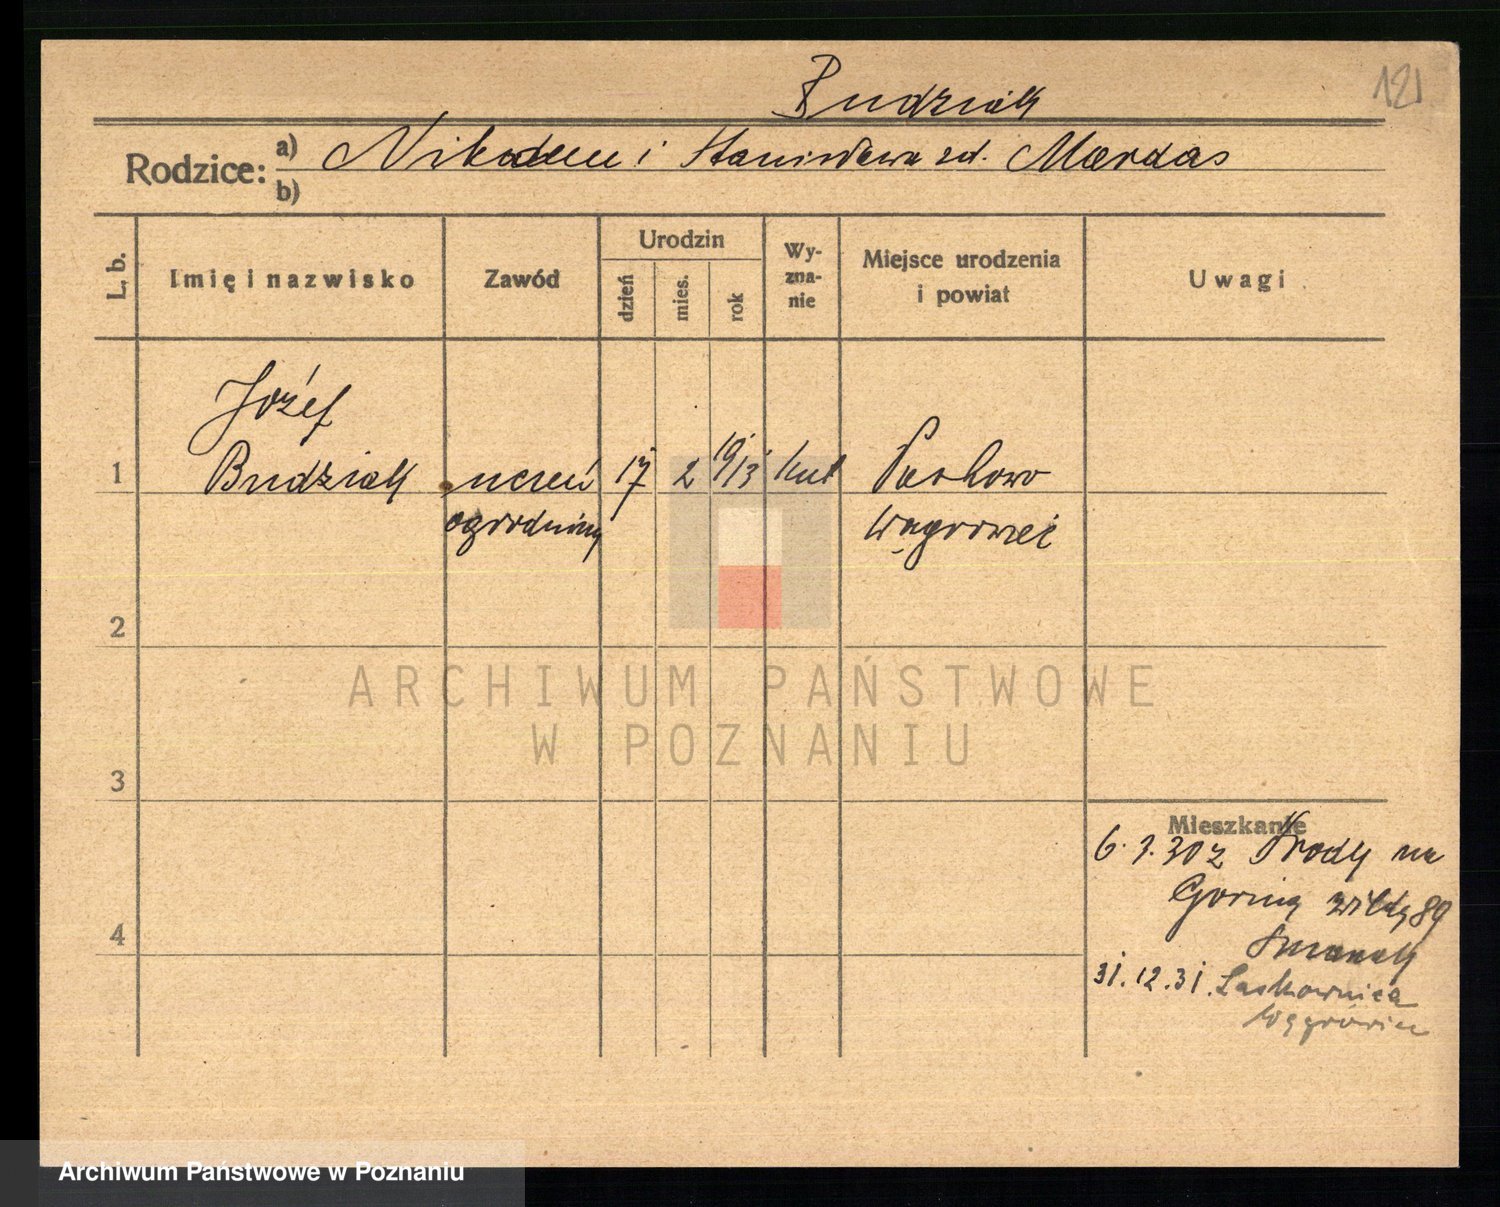 121
Budziak
Rodzice: a) Nikodem i Stanisława zd. Mardas
b)
L. b.
Imię i nazwisko
Zawód
Urodzin
dzień
mies.
rok
Wy-
zna-
nie
Miejsce urodzenia
i powiat
Uwagi
Józef
1 Budziak uczeń 17 2 1913 kat
ogrodniczy Wągrowiec
2
3
4
ARCHIWUM PAŃSTWOWE
W POZNANIU
Mieszkanie
6. 3. 30 z Środy na
Górna Wilda 89
31. 12. 31. Laskownica
Wągrowiec
Archiwum Państwowe w Poznaniu